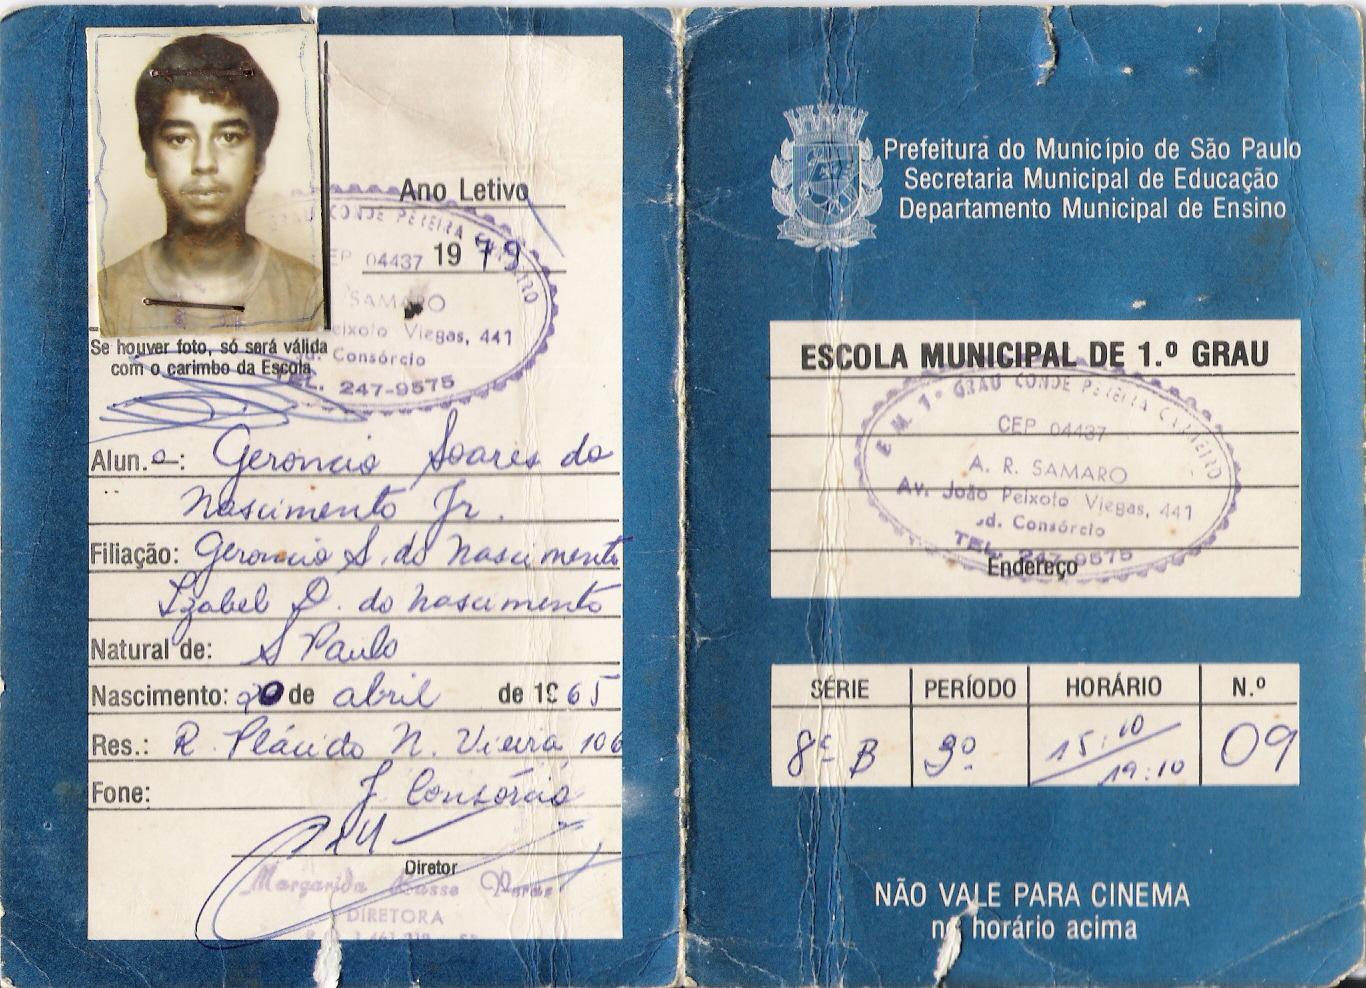 Ano Letivo
1979
Se houver foto, só será válida
com o carimbo da Escola.
CONDE PEREIRA
CEP 04437
SAMARO
Peixoto Viegas, 441
Jd. Consórcio
TEL. 247-9575
Alun.o: Geroncio Soares do
Nascimento Jr.
Filiação: Geroncio S. do Nascimento
Izabel D. do Nascimento
Natural de: S Paulo
Nascimento: 20 de abril de 1965
Res.: R. Plácido N. Vieira 106
Fone: J. Consórcio
Diretor
Margarida
DIRETORA
Prefeitura do Município de São Paulo
Secretaria Municipal de Educação
Departamento Municipal de Ensino
ESCOLA MUNICIPAL DE 1.º GRAU
E. M. 1º GRAU CONDE PEREIRA CARNEIRO
CEP 04437
A. R. SAMARO
Av. João Peixoto Viegas, 441
Jd. Consórcio
TEL. 247-9575
Endereço
SÉRIE PERÍODO HORÁRIO N.º
8ª B 3º 15:10 19:10 09
NÃO VALE PARA CINEMA
no horário acima